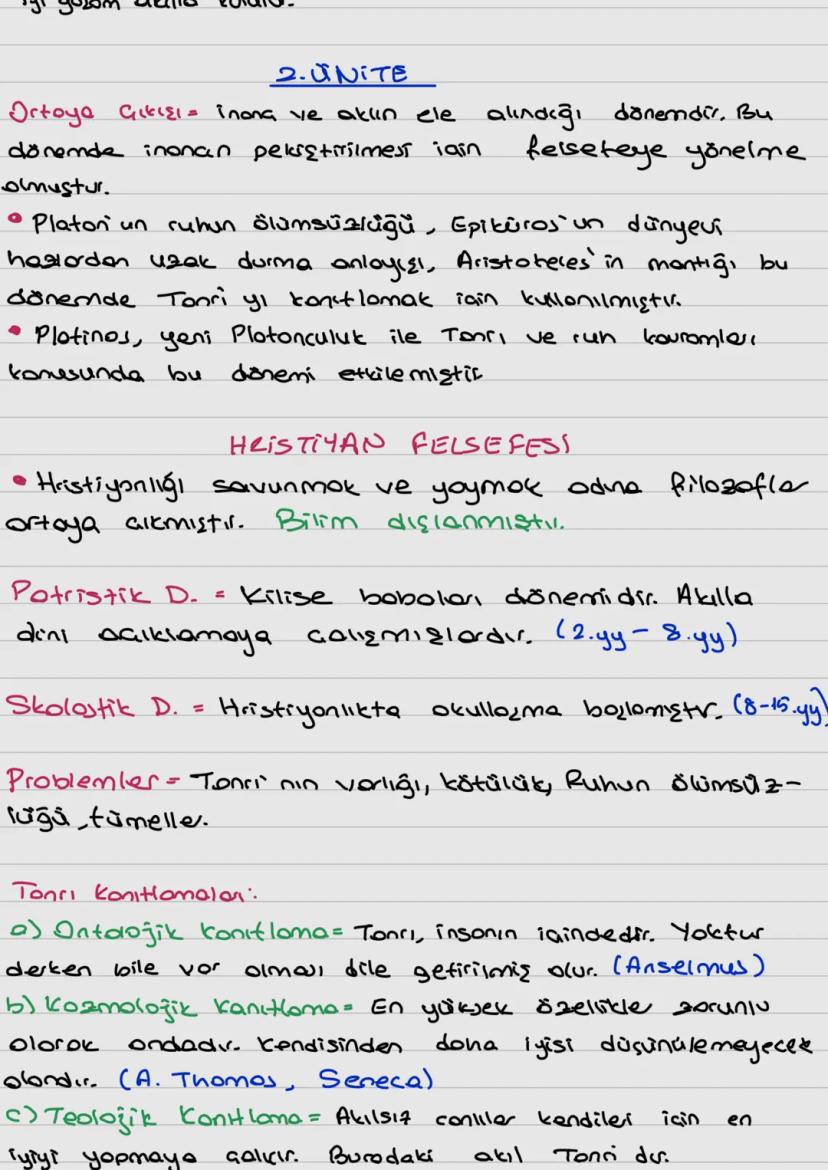 2. ÜNİTE
Ortaya Çıkışı = İnanç ve aklın ele alındığı dönemdir. Bu
dönemde inancın pekiştirilmesi için felsefeye yönelme
olmuştur.
• Platon'un ruhun ölümsüzlüğü, Epiküros'un dünyevi
hazlardan uzak durma anlayışı, Aristoteles'in mantığı bu
dönemde Tanrı'yı kanıtlamak için kullanılmıştır.
• Plotinos, yeni Platonculuk ile Tanrı ve ruh kavramları
konusunda bu dönemi etkilemiştir
HRİSTİYAN FELSEFESİ
• Hristiyanlığı savunmak ve yaymak adına filozoflar
ortaya çıkmıştır. Bilim dışlanmıştır.
Patristik D. = Kilise babaları dönemidir. Akılla
dini açıklamaya çalışmışlardır. (2.yy - 8.yy)
Skolastik D. = Hristiyanlıkta okullaşma başlamıştır. (8-15.yy)
Problemler = Tanrı'nın varlığı, kötülük, Ruhun ölümsüz-
lüğü, tümeller.
Tanrı Kanıtlamaları:
a) Ontolojik Kanıtlama = Tanrı, insanın içindedir. Yoktur
derken bile var olması dile getirilmiş olur. (Anselmus)
b) Kozmolojik Kanıtlama = En yüksek özellikle zorunlu
olarak ondadır. Kendisinden daha iyisi düşünülemeyecek
olandır. (A. Thomas, Seneca)
c) Teolojik Kanıtlama = Akılsız canlılar kendileri için en
iyiyi yapmaya çalışır. Buradaki akıl Tanrı'dır.